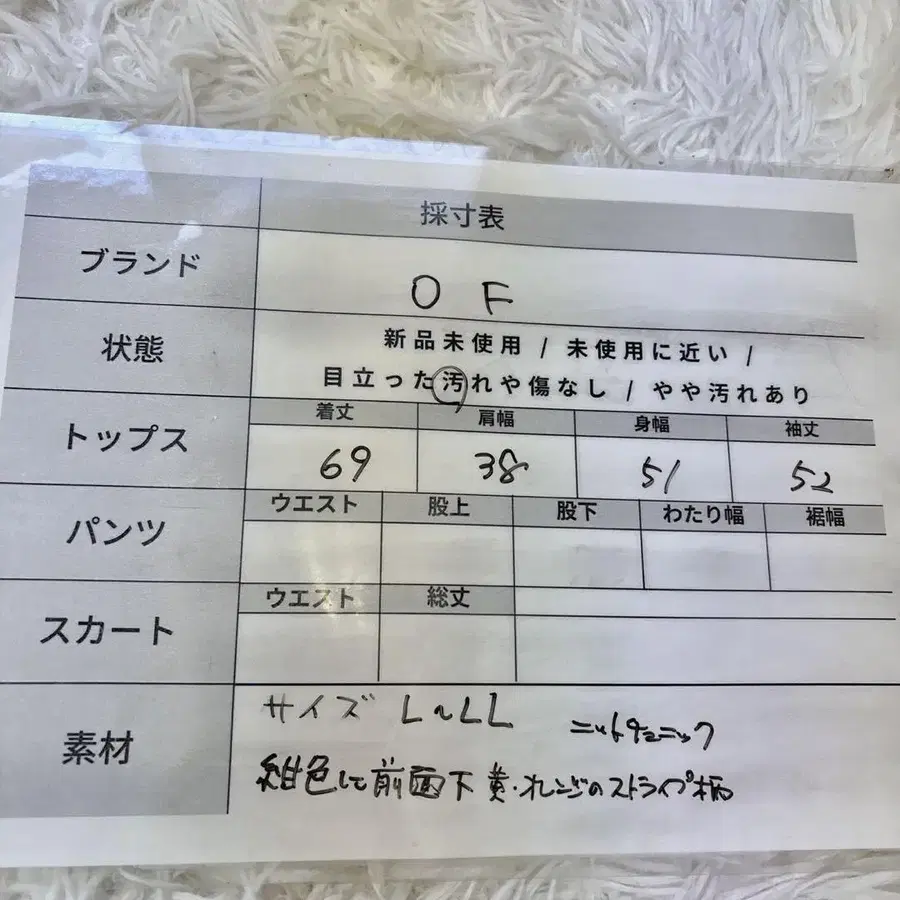 採寸表
ブランド
O F
状態
新品未使用 / 未使用に近い /
目立った汚れや傷なし / やや汚れあり
トップス
着丈 肩幅 身幅 袖丈
69 38 51 52
パンツ
ウエスト 股上 股下 わたり幅 裾幅
スカート
ウエスト 総丈
素材
サイズ L~LL ニットチュニック
紺色して前面下 黄・オレンジのストライプ柄